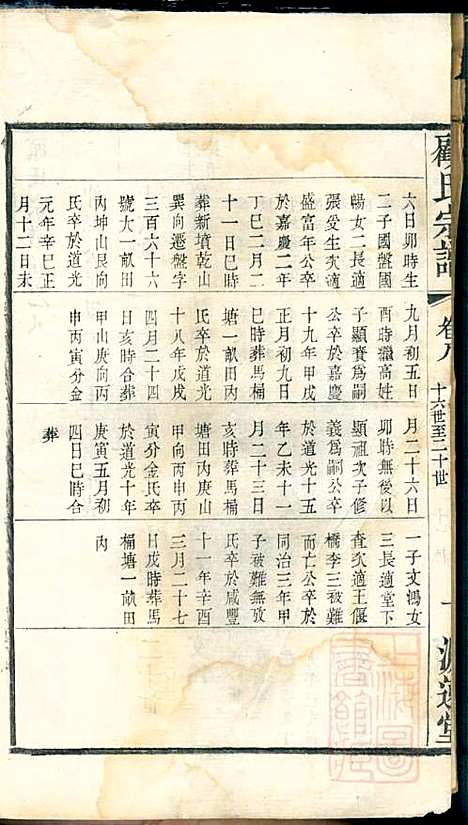 顧氏宗譜
卷八
十六世至二十世
一
源遠堂
六日卯時生
二子國盤國
暢女二長適
張受生次適
盛富年公卒
於嘉慶二年
丁巳二月二
十一日巳時
葬新墳乾山
巽向憑盤字
三百六十六
號大一畝田
丙坤山艮向
氏卒於道光
元年辛巳正
月十二日未
九月初五日
酉時繼高姓
子顯賡為嗣
公卒於嘉慶
十九年甲戌
正月初九日
巳時葬馬桶
塘一畝田内
氏卒於道光
十八年戊戌
四月二十四
日亥時合葬
甲山庚向丙
申丙寅分金
月二十六日
卯時無後以
顯祖次子修
義為嗣公卒
於道光十五
年乙未十一
月二十三日
亥時葬馬桶
塘田内庚山
甲向丙申丙
寅分金氏卒
於道光十年
庚寅五月初
四日巳時合
葬
一子文鴻女
三長適堂下
查次適王偃
橋李三被難
而亡公卒於
同治三年甲
子被難無攷
氏卒於咸豐
十一年辛酉
三月二十七
日戌時葬馬
桶塘一畝田
内
上海圖書館藏